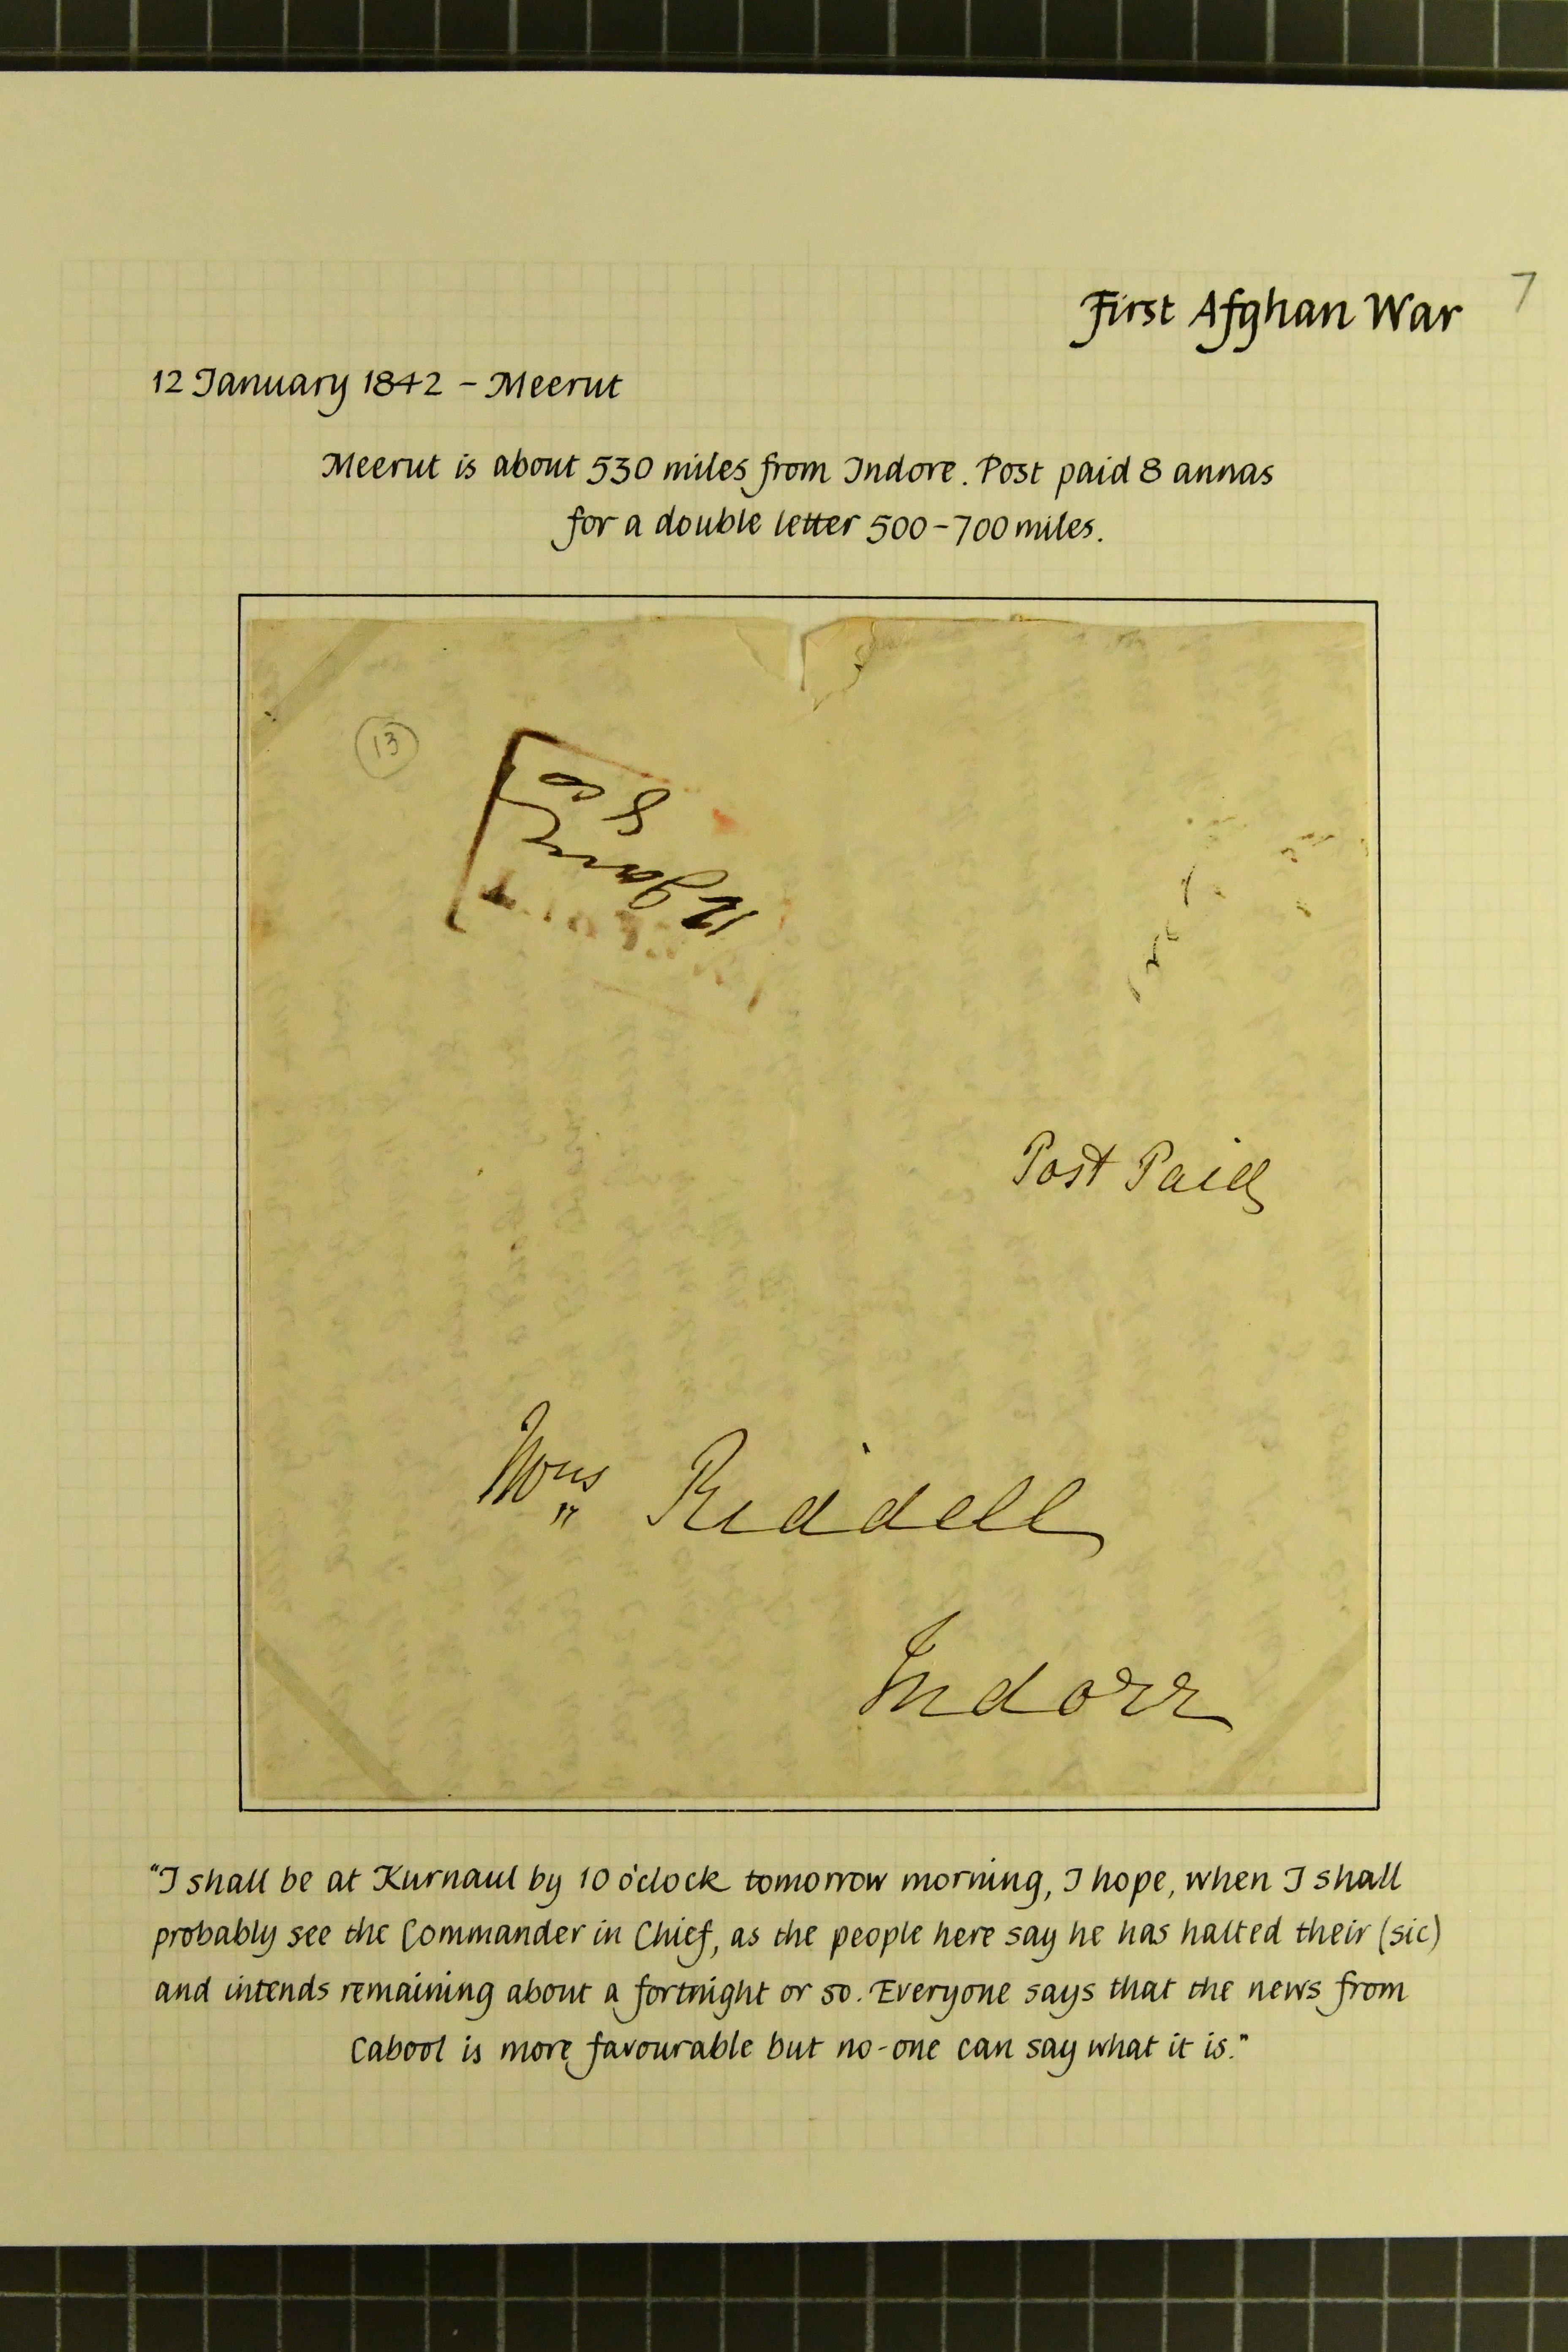 7
First Afghan War
12 January 1842 – Meerut
Meerut is about 530 miles from Indore. Post paid 8 annas
for a double letter 500–700 miles.
13
12 Jany
8 a
Post Paid
Riddell
Indore
"I shall be at Kurnaul by 10 o'clock tomorrow morning, I hope, when I shall
probably see the Commander in Chief, as the people here say he has halted their (sic)
and intends remaining about a fortnight or so. Everyone says that the news from
Cabool is more favourable but no-one can say what it is."